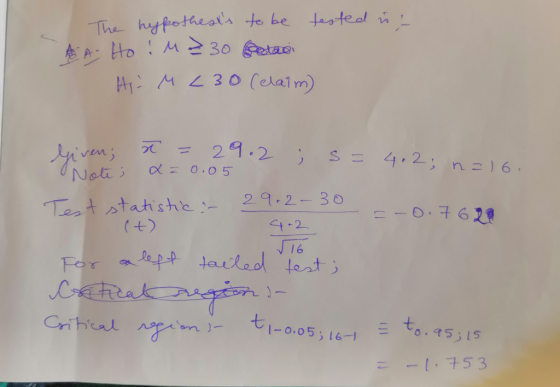 The hypothesis to be tested is :-
A. H₀ : μ ≥ 30
H₁ : μ < 30 (claim)
Given; x̄ = 29.2 ; s = 4.2 ; n = 16.
Note; α = 0.05
Test statistic :- (29.2 - 30) / (4.2 / √16) = -0.762
(t)
For left tailed test;
Critical region :-
Critical region :- t₁₋₀.₀₅ ; ₁₆₋₁ ≡ t₀.₉₅ ; ₁₅
= -1.753